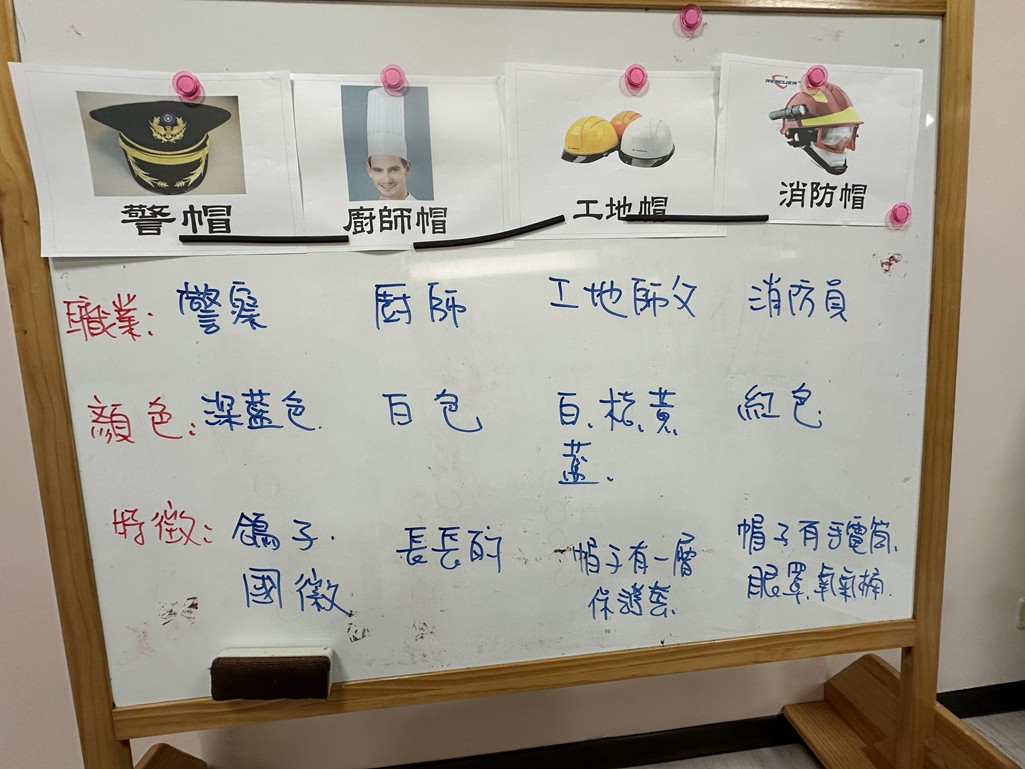 RESCUER
警帽
廚師帽
工地帽
消防帽
職業: 警察 廚師 工地師父 消防員
顏色: 深藍色. 白色 白、橘、黃、 紅色
藍.
特徵: 鴿子. 長長的 帽子有一層 帽子有手電筒、
國徽 保護套 眼罩、氧氣桶.